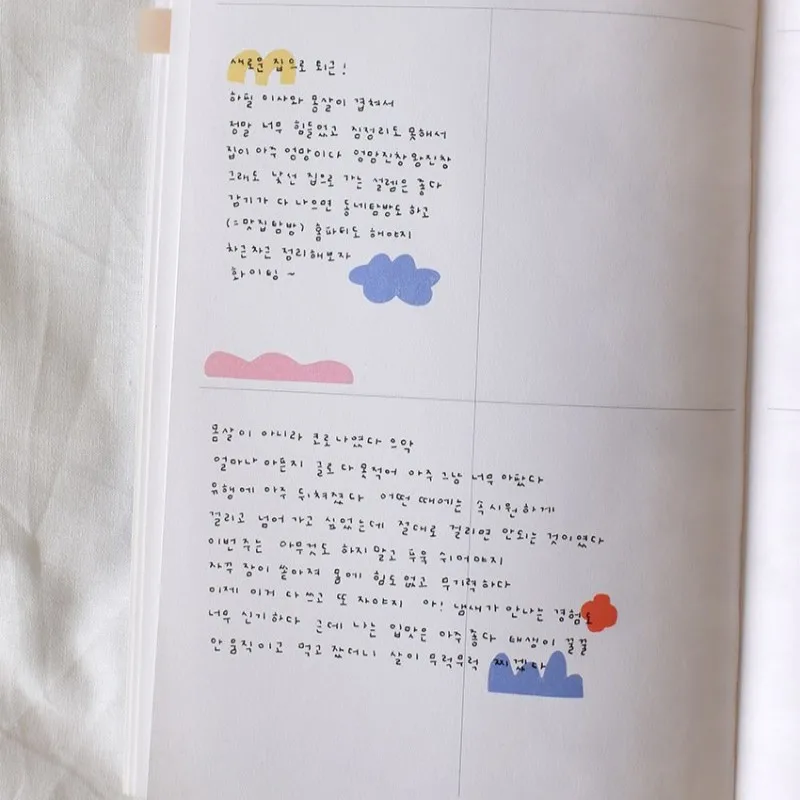 새로운 집으로 퇴근!
하필 이사와 몸살이 겹쳐서
정말 너무 힘들었고 짐정리도 못해서
집이 아주 엉망이다 엉망진창왕진창
그래도 낯선 집으로 가는 설렘은 좋다
감기가 다 나으면 동네탐방도 하고
(=맛집탐방) 홈파티도 해야지
차근차근 정리해보자
화이팅~
몸살이 아니라 코로나였다 으악
얼마나 아픈지 글로 다 못적어 아주 그냥 너무 아팠다
유행에 아주 뒤쳐졌다 어떤 때에는 속시원하게
걸리고 넘어가고 싶었는데 절대로 걸리면 안되는 것이였다
이번주는 아무것도 하지말고 푸욱 쉬어야지
자꾸 잠이 쏟아져 몸에 힘도 없고 무기력하다
이제 이거 다 쓰고 또 자야지 아! 냄새가 안나는 경험도
너무 신기하다 근데 나는 입맛은 아주 좋다 태생이 걸걸
안 움직이고 먹고 잤더니 살이 무럭무럭 찌겠다